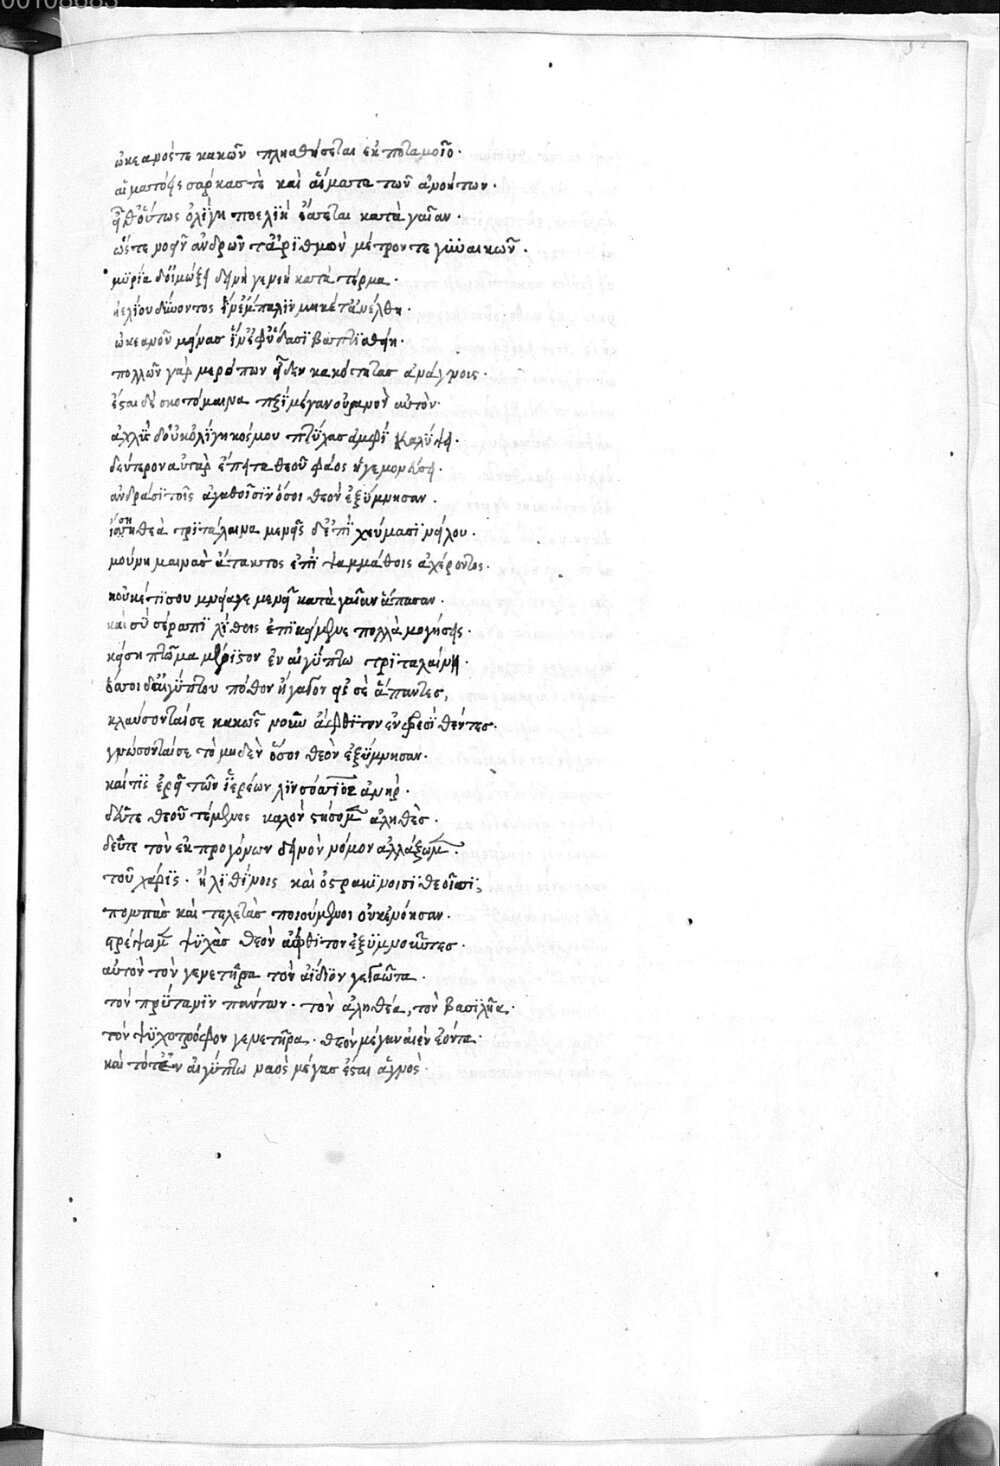 ὠκεανός τε κακῶν πληθήσεται ἐκ ποταμοῖο·
αἱματόεις σάρκας τὲ καὶ αἵματα τῶν ἀνοήτων·
εἶθ οὕτως ὀλίγη γαῖαν·
ὥστε νοεῖν ἀνδρῶν τ' ἀριθμὸν μέτρον τε γυναικῶν·
μυρία δ' οἰμώξει δειλὴ γενεὴ κατὰ τέρμα·
ἠελίου δύνοντος ἵν' ἔμπαλιν μηκέτ' ἀνέλθη·
ὠκεανοῦ μείνας ἵν' ἐφ' ὕδασι βαπτισθείη·
πολλῶν γὰρ μερόπων εἶδεν κακότητας ἀνάγνοις·
ἔσται δὲ σκοτόμαινα περὶ μέγαν οὐρανὸν αὐτὸν·
ἀχλὺς δ' οὐκ ὀλίγη κόσμου πτύχας ἀμφὶ καλύψει·
δεύτερον αὐτὰρ ἔπειτα θεοῦ φάος ἡγεμονεύσει·
ἀνδράσι τοῖς ἀγαθοῖσιν ὅσοι θεὸν ἐξύμνησαν·
ἶσι θεὰ τριτάλαινα μενεῖς δ' ἐπὶ χεύμασι νείλου·
μούνη μαινὰς ἄτακτος ἐπὶ ψαμμάθοις ἀχέροντος·
κοὐκέτι σου μνεία γε μενεῖ κατὰ γαῖαν ἅπασαν·
καὶ σὺ σέραπι λίθοις ἐπικείμενε πολλὰ μογήσεις·
κείση πτῶμα μέγιστον ἐν αἰγύπτω τριταλαίνη·
ὅσοι δ' αἰγύπτου πόθον ἤγαγον εἰς σὲ ἅπαντες,
κλαύσονταί σε κακῶς νοῦν ἄφθιτον ἐν φρεσὶ θέντες·
γνώσονταί σε τὸ μηδὲν ὅσοι θεὸν ἐξύμνησαν·
καί τις ἐρεῖ τῶν ἱερέων λινόστολος ἀνὴρ·
δεῦτε θεοῦ τέμενος καλὸν στήσομεν ἀληθὲς·
δεῦτε τὸν ἐκ προγόνων δεινὸν νόμον ἀλλάξωμεν·
τοῦ χάρις· ἢ λιθίνοις καὶ ὀστρακίνοισι θεοῖσι,
πομπὰς καὶ τελετὰς ποιούμενοι οὐκ ἐνόησαν·
στρέψωμεν ψυχὰς θεὸν ἄφθιτον ἐξυμνοῦντες·
αὐτὸν τὸν γενετῆρα τὸν ἀίδιον γεγαῶτα·
τὸν πρύτανιν πάντων· τὸν ἀληθέα, τὸν βασιλῆα·
τὸν ψυχοτρόφον γενετῆρα· θεὸν μέγαν αἰὲν ἐόντα·
καὶ τότ' ἐν αἰγύπτω ναὸς μέγας ἔσται ἁγνὸς·